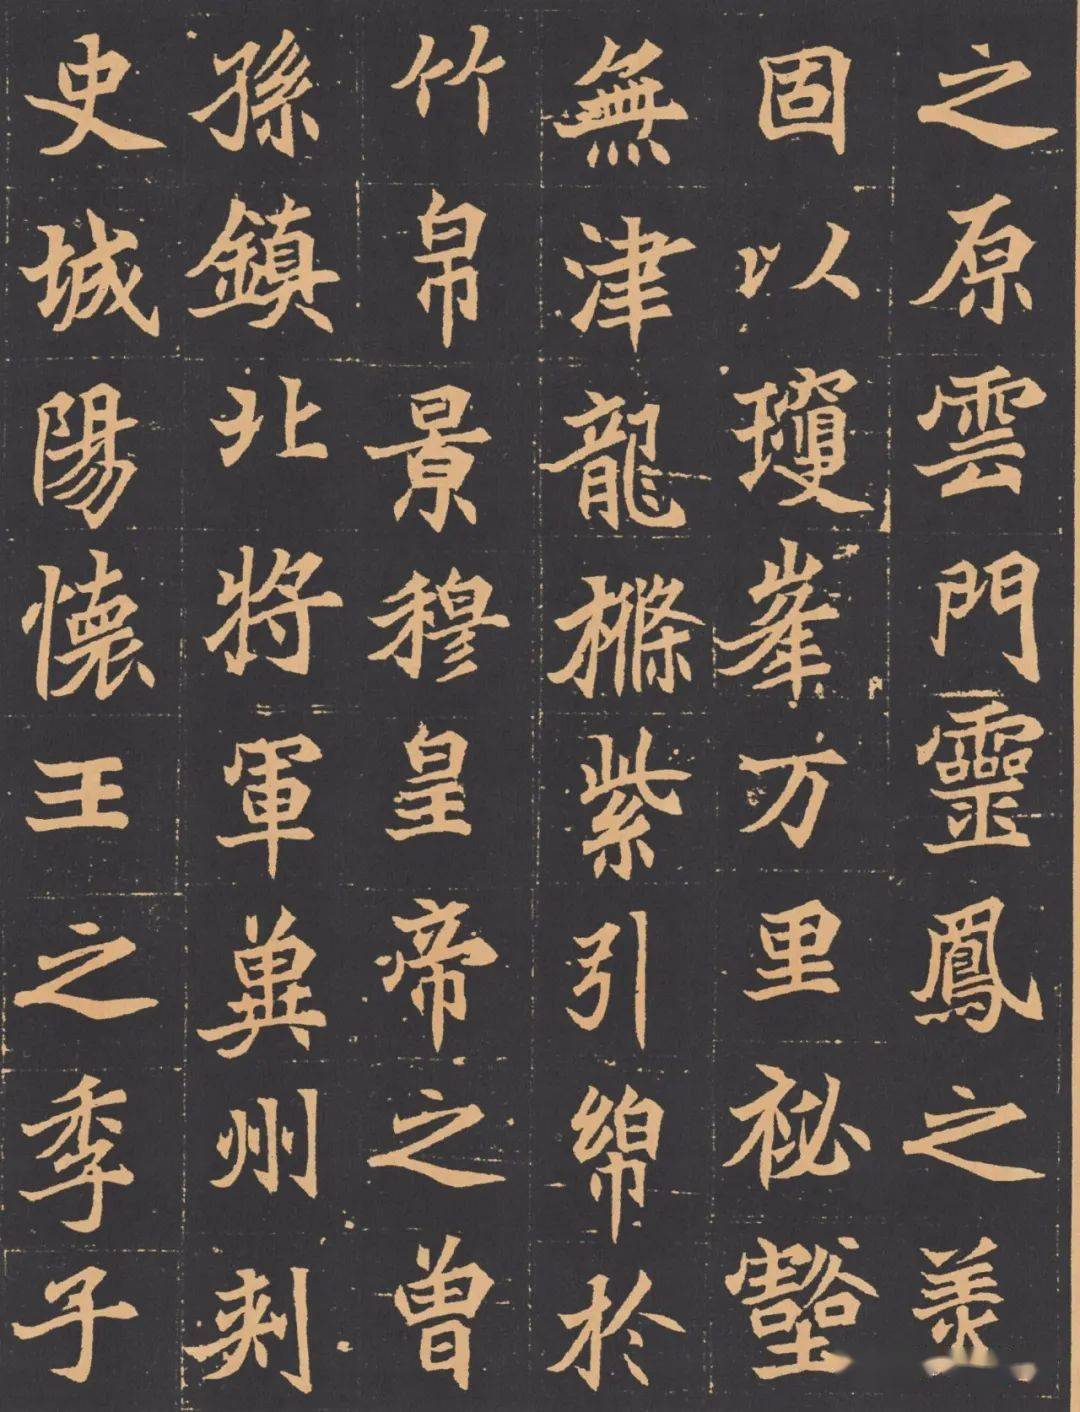 之原雲門靈鳳之美
固以瓊峯万里秘壑
無津龍樤紫引綿於
竹帛景穆皇帝之曾
孫鎮北將軍冀州刺
史城陽懷王之季子